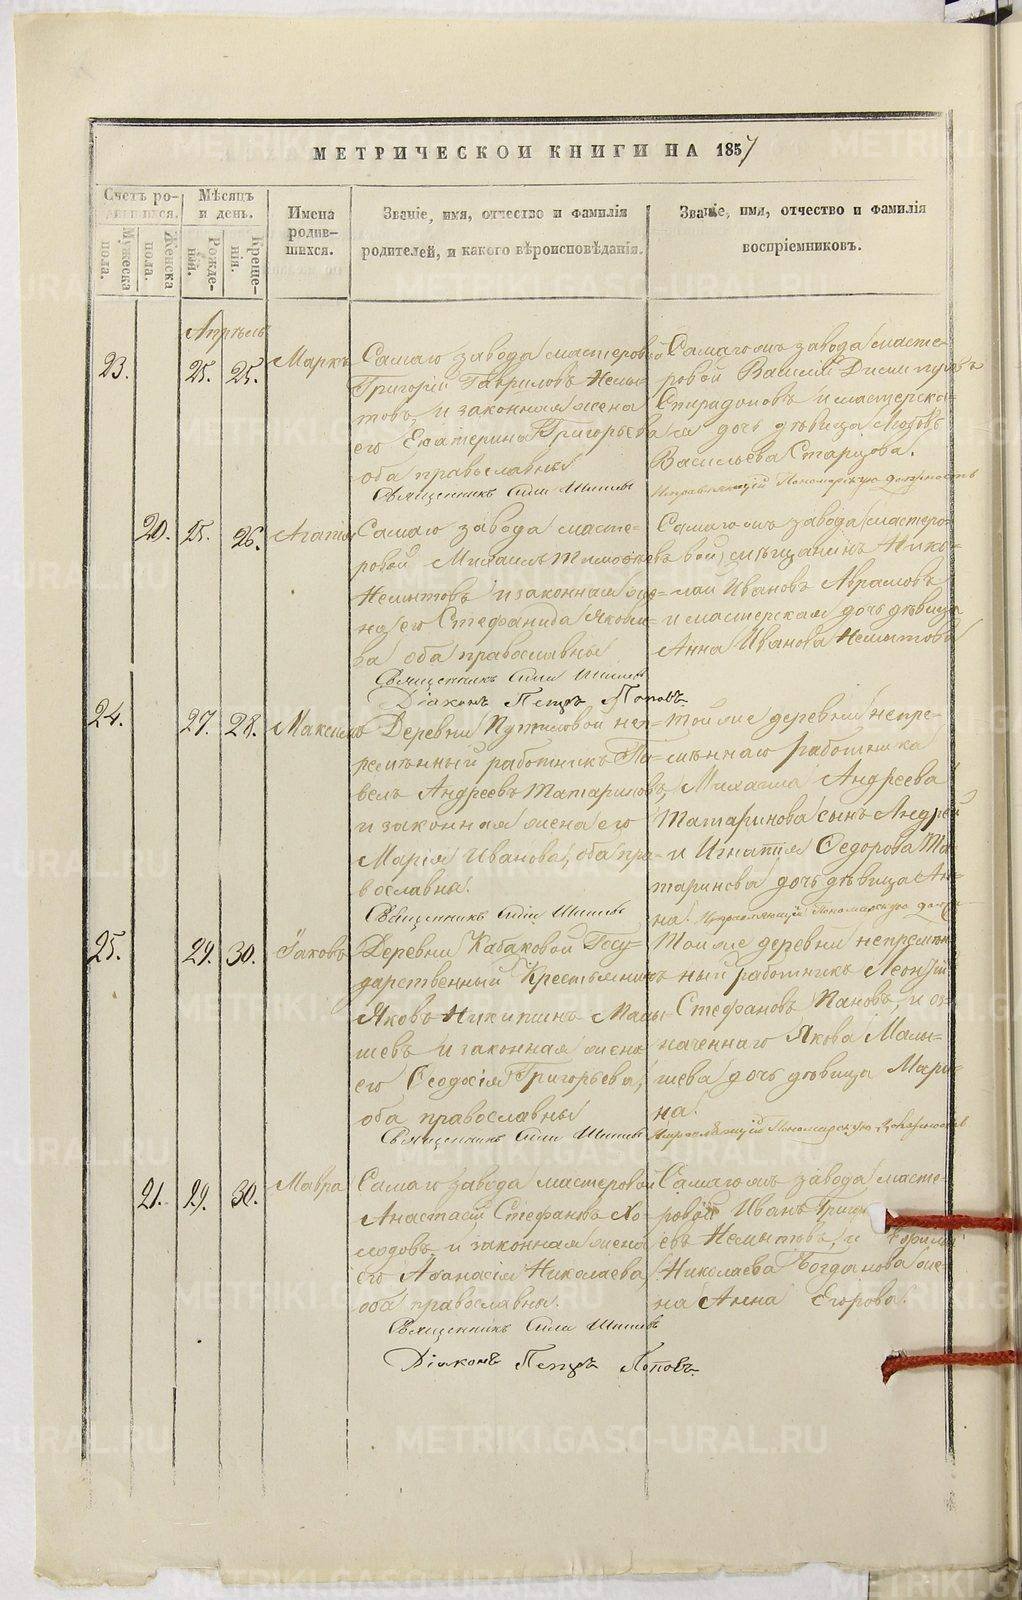 МЕТРИЧЕСКОЙ КНИГИ НА 1857
Счетъ родившихся.
Мѣсяцъ и день.
Имена родившихся.
Званіе, имя, отчество и фамилія родителей, и какого вѣроисповѣданія.
Званіе, имя, отчество и фамилія воспріемниковъ.
Мужеска пола.
Женска пола.
Рожденій.
Крещенія.
Апрѣль
23.
25.
25.
Маркъ
Самаго завода мастеровой
Григорій Гавриловъ Немы-
товъ, и законная жена
его Екатерина Григорьева
оба православны
Священникъ
Самаго жъ завода масте-
ровой Василій
Спиридоновъ и мастерска-
го дочь дѣвица
Васильева Старцова.
Исправляющій Пономарскую должность
20.
25.
26.
Агапія
Самаго завода масте-
ровой Михаилъ Тимоѳѣевъ
Немытовъ и законная же-
на его Стефанида Яковле-
ва оба православны
Священникъ
Діаконъ Петръ Поповъ.
Самаго жъ завода мастеро-
вой, Нико-
лай Ивановъ Аврамовъ
и мастерская дочь дѣвица
Анна Иванова Немытова
24.
27.
28.
Максимъ
Деревни Путиловой неп-
ремѣнный работникъ Па-
велъ Андреевъ Татариновъ,
и законная жена его
Марія Иванова, оба пра-
вославны.
Священникъ
Той же деревни непре-
мѣннаго работника
Михаила Андреева
Татаринова сынъ Андрей
и Игнатія Ѳедорова Та-
таринова дочь дѣвица Ан-
на. Исправляющій Пономарскую долж-
25.
29.
30.
Іаковъ
Деревни Кабаковой Госу-
дарственный Крестьянинъ
Яковъ Никитинъ Малы-
шевъ и законная жена
его Ѳеодосія Григорьева,
оба православны
Священникъ
Той же деревни непремѣн-
ный работникъ Леонтій
Стефановъ Пановъ, и оз-
наченнаго Якова Малы-
шева дочь дѣвица Мари-
на.
Исправляющій Пономарскую должность
21.
29.
30.
Мавра
Самаго завода мастеровой
Анастасій Стефановъ Хо-
лодовъ и законная жена
его Аѳанасія Николаева,
оба православны.
Священникъ
Діаконъ Петръ Поповъ.
Самаго жъ завода масте-
ровой Иванъ
евъ Немытовъ, и
Николаева Богданова же-
на Анна Егорова.
METRIKI.GASO-URAL.RU